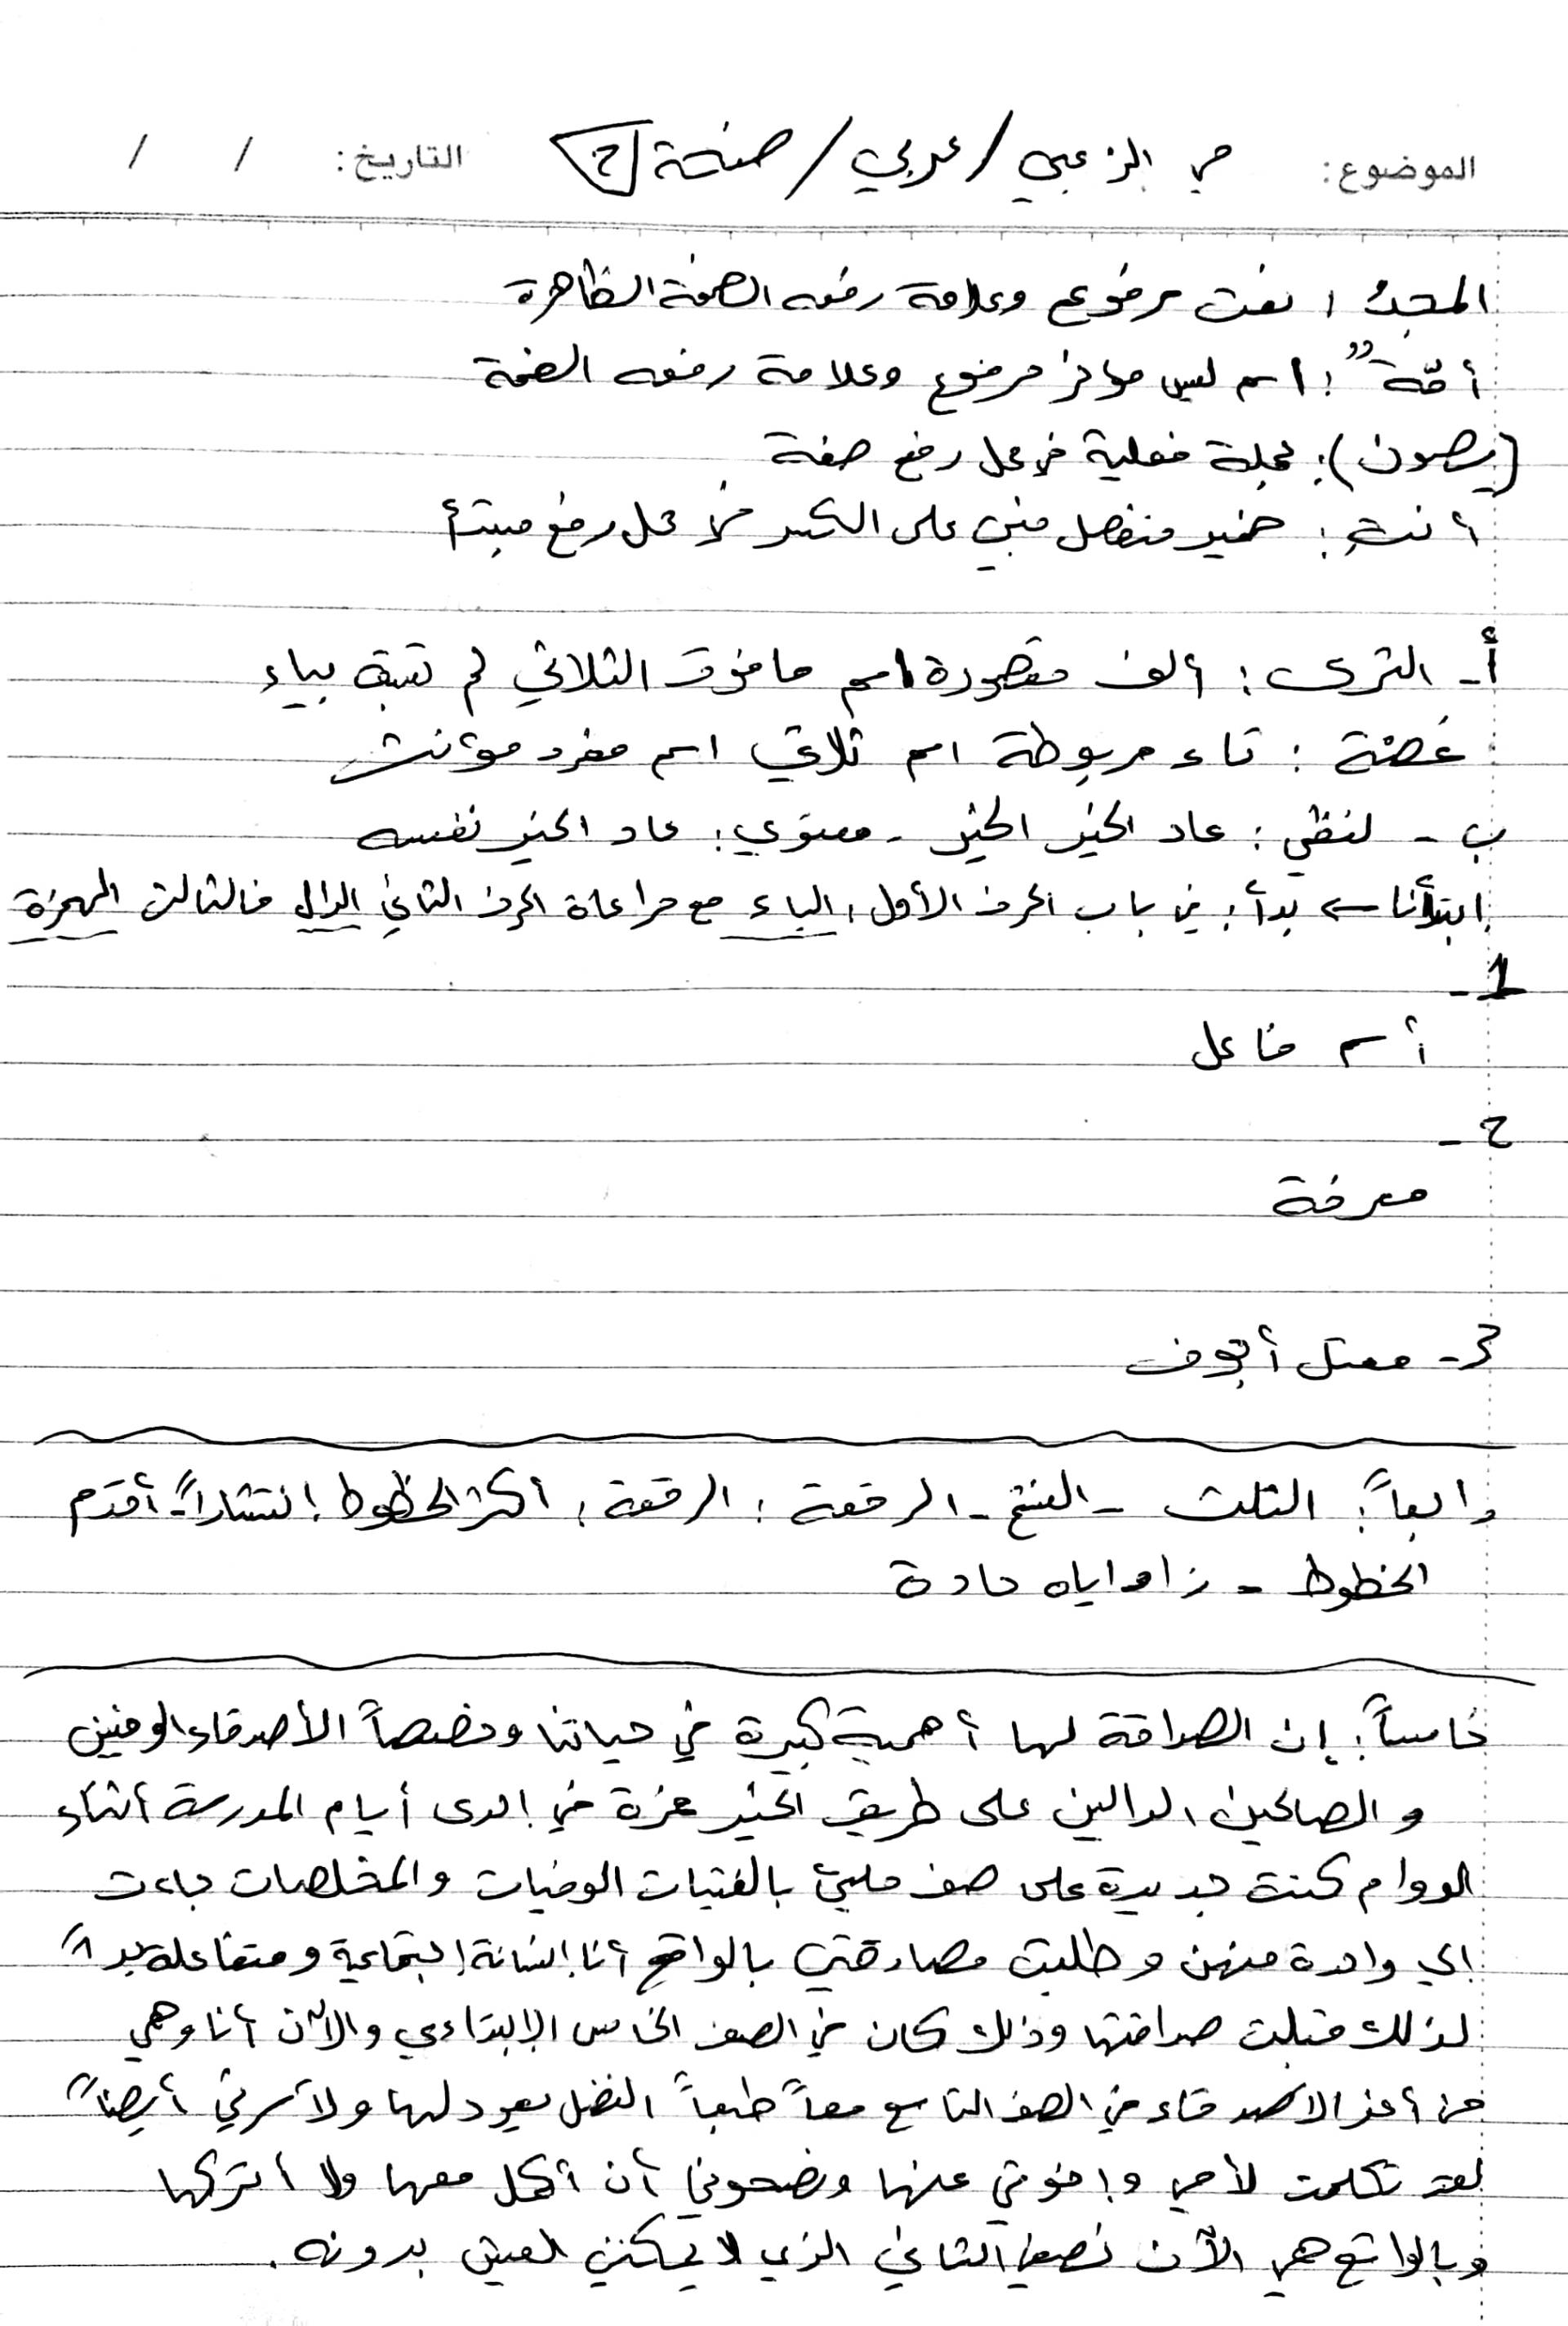 الموضوع: مي الزعبي / عربي / صفحة ٢ التاريخ: / /
المجدُ: نعت مرفوع وعلامة رفعه الضمة الظاهرة
أمّةٌ: اسم ليس مؤخر مرفوع وعلامة رفعه الضمة
(يصون): جملة فعلية في محل رفع صفة
أنتِ: ضمير منفصل مبني على الكسر في محل رفع مبتدأ
أ- الثرى: ألف مقصورة اسم ما فوق الثلاثي لم تسبق بياء
غصّة: تاء مربوطة اسم ثلاثي اسم مفرد مؤنث
ب - لفظي: عاد الخير الخير - معنوي: عاد الخير نفسه
ابتدأنا ← بدأ: في باب الحرف الأول: الباء مع مراعاة الحرف الثاني الدال فالثالث الهمزة
1-
أسم فاعل
2-
معرفة
3- معتل أجوف
رابعاً: الثلث - النسخ - الرقعة: الرقعة: أكثر الخطوط إنتشاراً - أقدم
الخطوط - زاواياه حادة
خامساً: إن الصداقة لها أهمية كبيرة في حياتنا وخصصاً الأصدقاء الوفيين
و الصالحين الدالين على طريق الخير عزة في إحدى أيام المدرسة أثناء
الدوام كنت جديدة على صف مليئ بالفتيات الوفيات والمخلصات جاءت
إلي واحدة منهن وطلبت مصادقتي بالواقع أنا إنسانة إجتماعية ومتفاعلة جداً
لذلك قبلت صداقتها وذلك كان في الصف الخامس الإبتداءي والآن أنا وهي
من أعز الأصدقاء في الصف التاسع معاً طبعاً الفضل يعود لها ولأسرتي أيضاً
لقد تكلمت لأمي وإخوتي عنها ونصحوني أن أكمل معها ولا أتركها
وبالواقع هي الآن نصفي الثاني الذي لا يمكنني العيش بدونه.